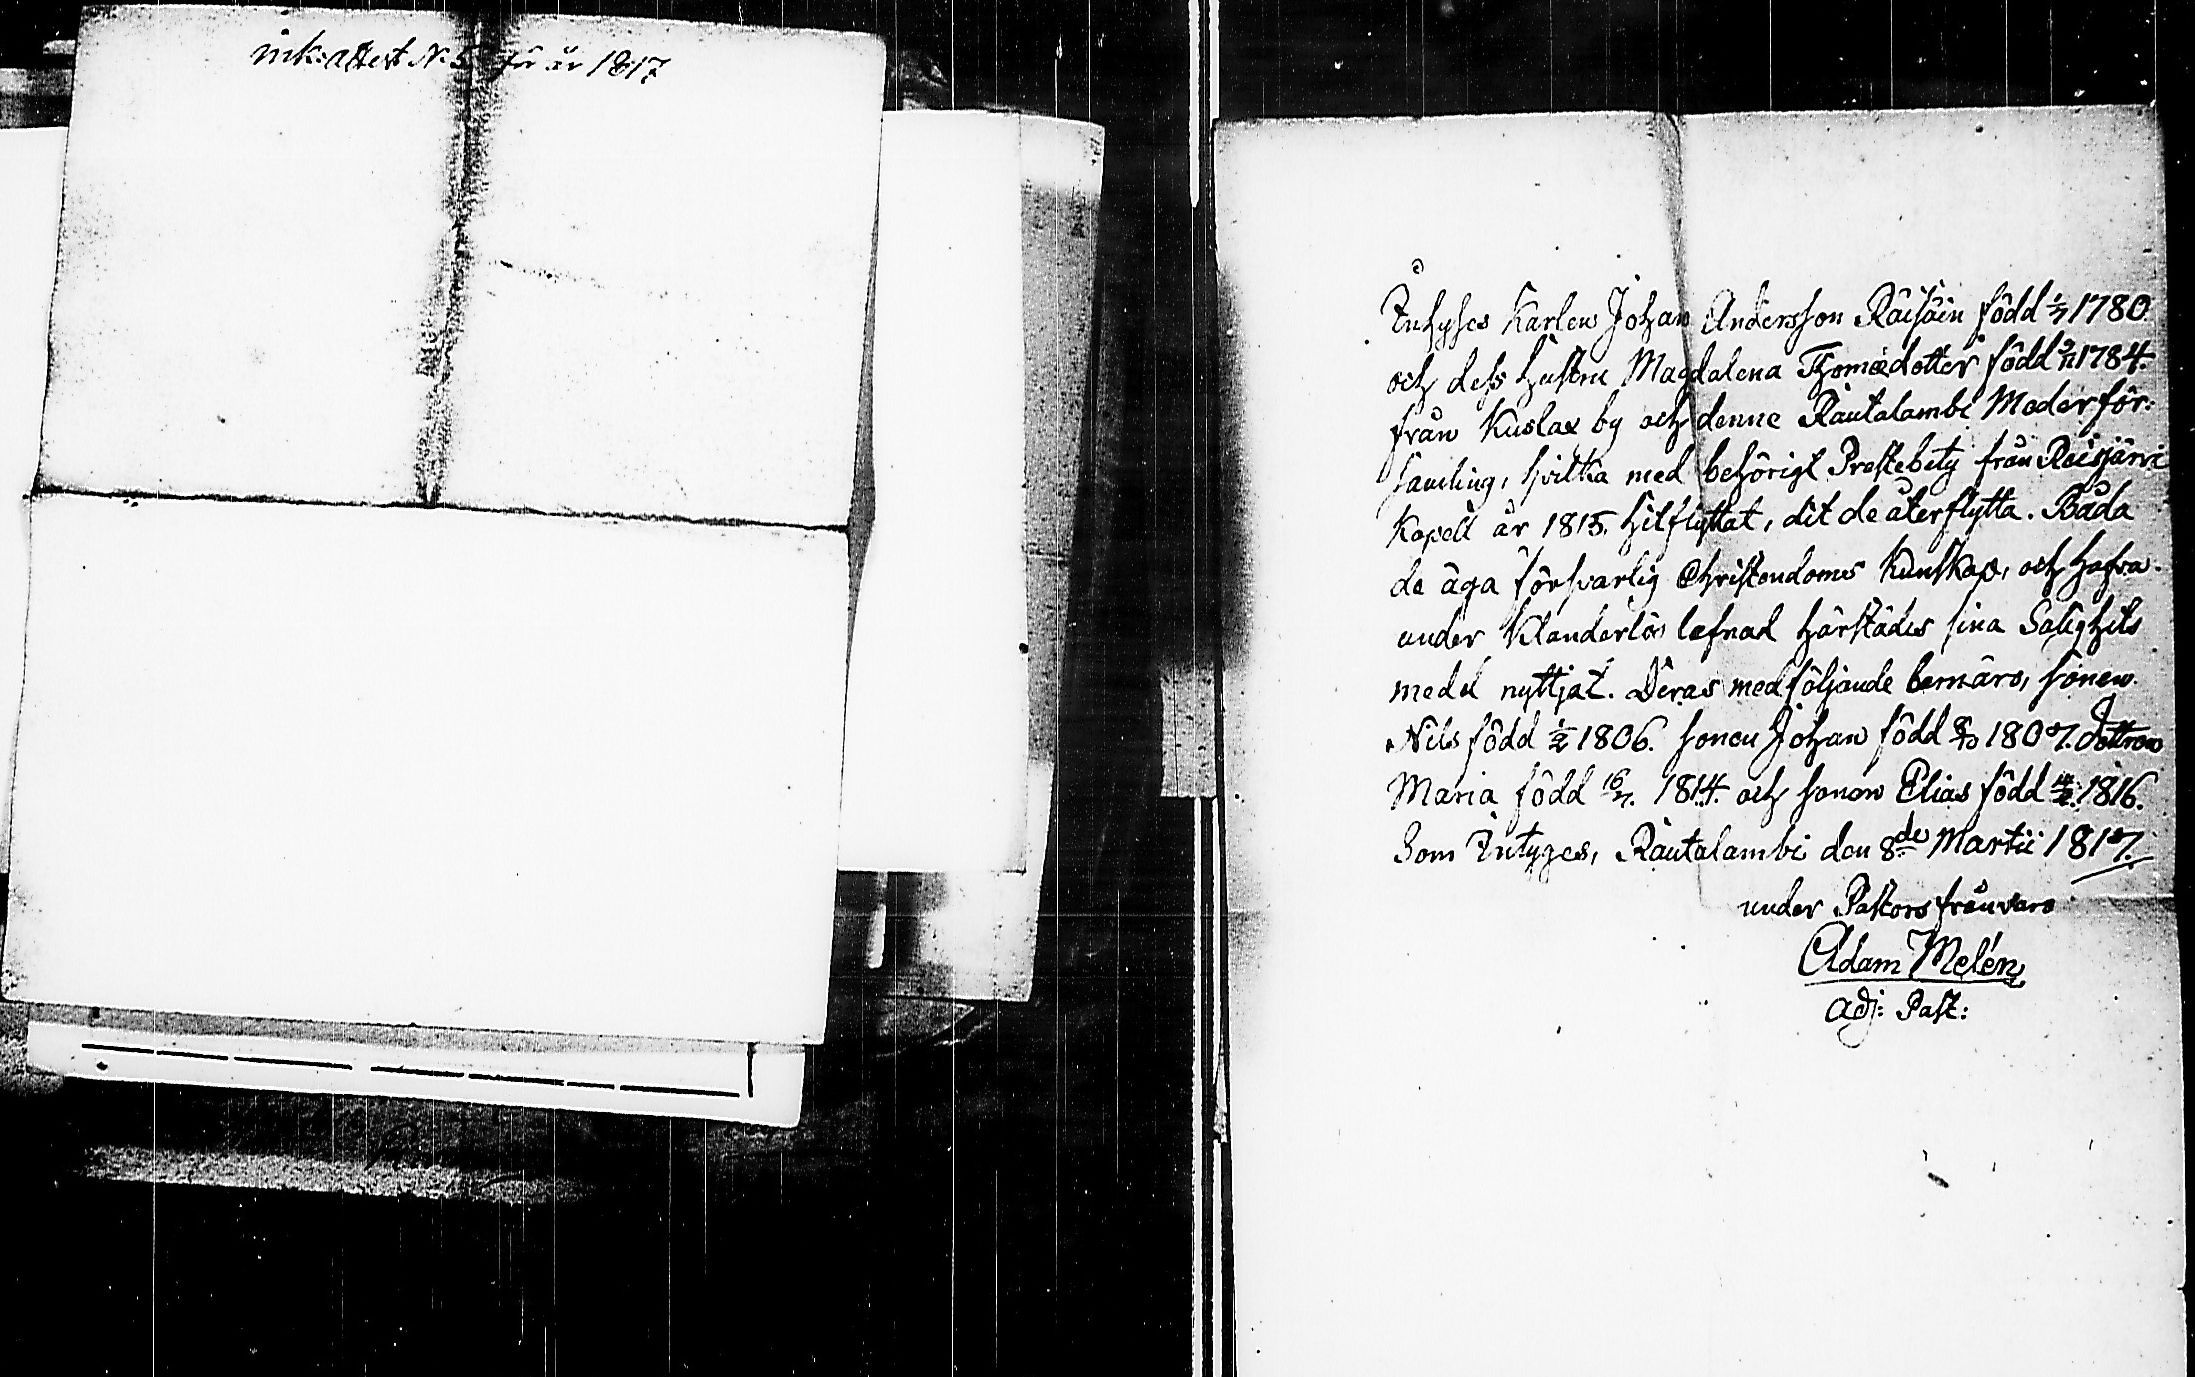 ink: attest N. 5 för år 1817
Inhyses Karlen Johan Andersson Räisäin född 1/7 1780
och dess hustru Magdalena Thomædotter född 9/11 1784.
från Kuslax by och denne Rautalambi Moderför-
samling, hvilka med behörigt Prestebetyg från Reisjärvi
Kapell år 1815. hitflyttat, dit de återflytta. Båda
de äga försvarlig Christendoms Kunskap, och hafva
under Klanderlös lefnad härstädes sina Salighets
medel nyttjat. Deras medföljande barn äro, sonen
Nils född 1/2 1806. sonen Johan född 1807. dottren
Maria född 16/7. 1814. och sonen Elias född 1816.
Som Intyges, Rautalambi den 8de Martii 1817.
under Pastors frånvaro
Adam Melén
Adj: Past: